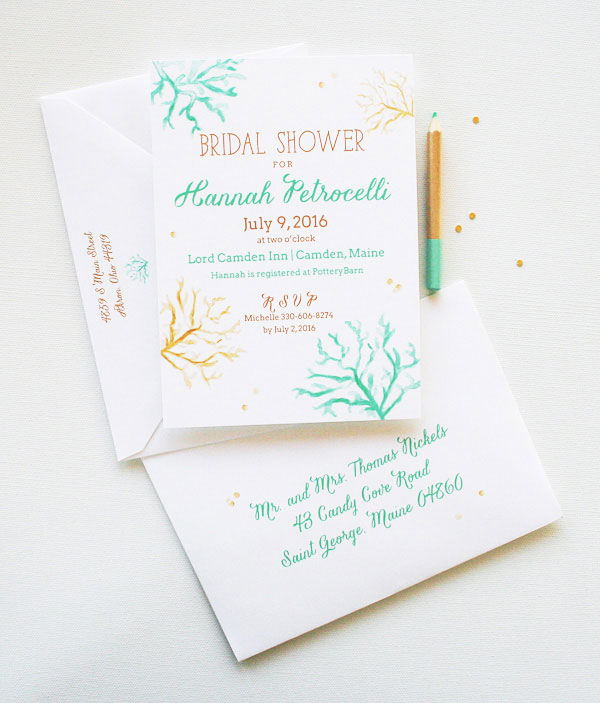 BRIDAL SHOWER
FOR
Hannah Petrocelli
July 9, 2016
at two o'clock
Lord Camden Inn | Camden, Maine
Hannah is registered at Pottery Barn
RSVP
Michelle 330-606-8274
by July 2, 2016
4839 S Main Street
Akron, Ohio 44319
Mr. and Mrs. Thomas Nickels
43 Candy Cove Road
Saint George, Maine 04860